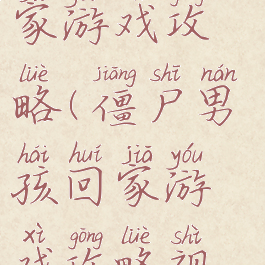 家游戏攻
lüè jiāng shī nán
略(僵尸男
hái huí jiā yóu
孩回家游
xì gōng lüè shì
戏攻略视